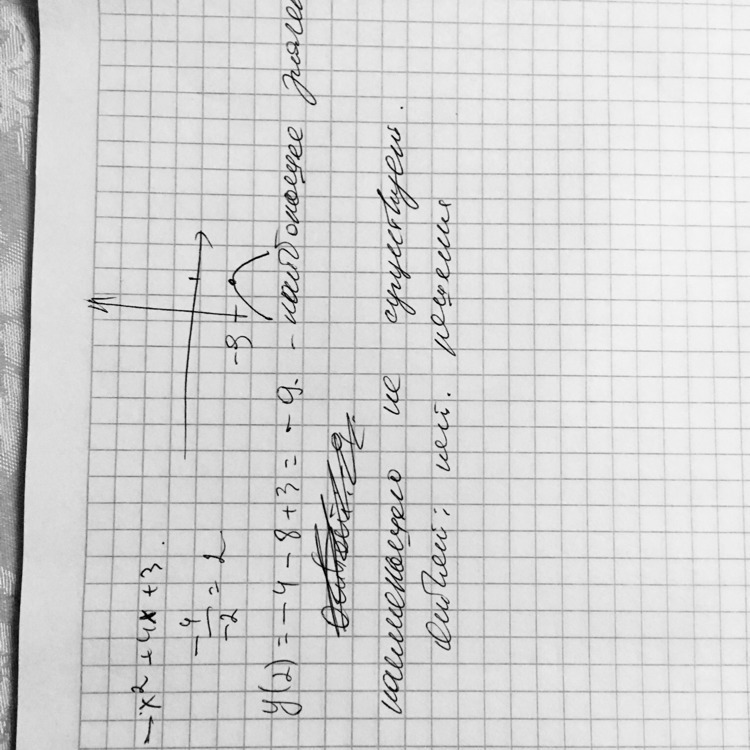 -x² + 4x + 3.
-4/-2 = 2
-9
y(2) = -4 - 8 + 3 = -9. - наибольшее
наименьшего не существует.
Ответ: нет. решения